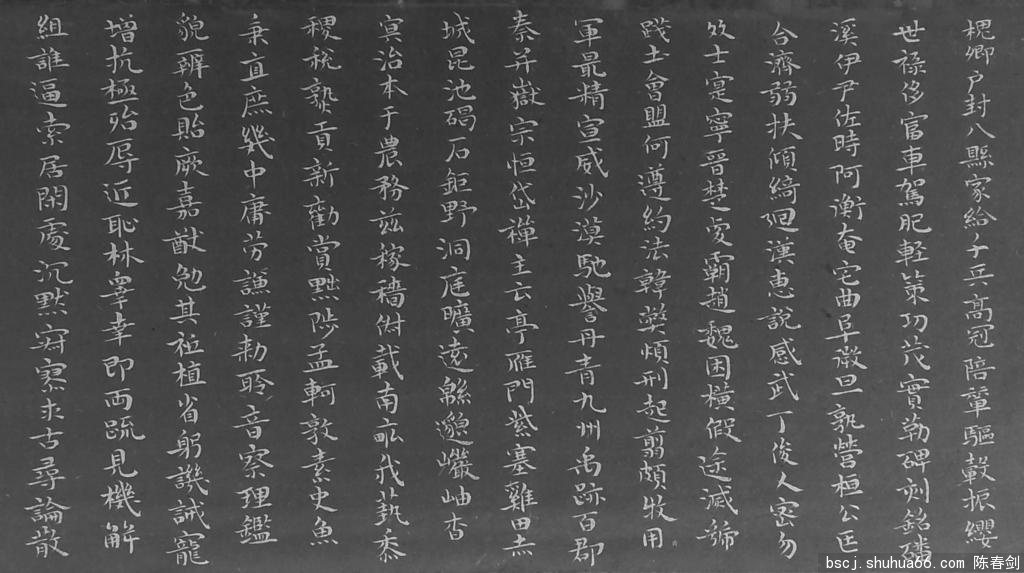 槐卿户封八縣家給千兵髙冠陪輦驅轂振纓
世禄侈富車駕肥軽策功茂實勒碑刻銘磻
溪伊尹佐時阿衡奄宅曲阜微旦孰營桓公匡
合濟弱扶傾綺迴漢惠説感武丁俊乂密勿
多士寔寧晋楚更霸趙魏困橫假途滅虢
踐土會盟何遵約法韓弊煩刑起翦頗牧用
軍最精宣威沙漠馳譽丹青九州禹跡百郡
秦并嶽宗恒岱禪主云亭雁門紫塞雞田赤
城昆池碣石鉅野洞庭曠遠緜邈巖岫杳
冥治本于農務兹稼穡俶載南畝我蓺黍
稷稅熟貢新勸賞黜陟孟軻敦素史魚
秉直庶幾中庸劳謙謹勅聆音察理鑑
貌辨色貽厥嘉猷勉其祗植省躬譏誡寵
增抗極殆辱近恥林皋幸即兩疏見機解
組誰逼索居閑處沉默寂寥求古尋論散
bscj.shuhua66.com 陈春剑